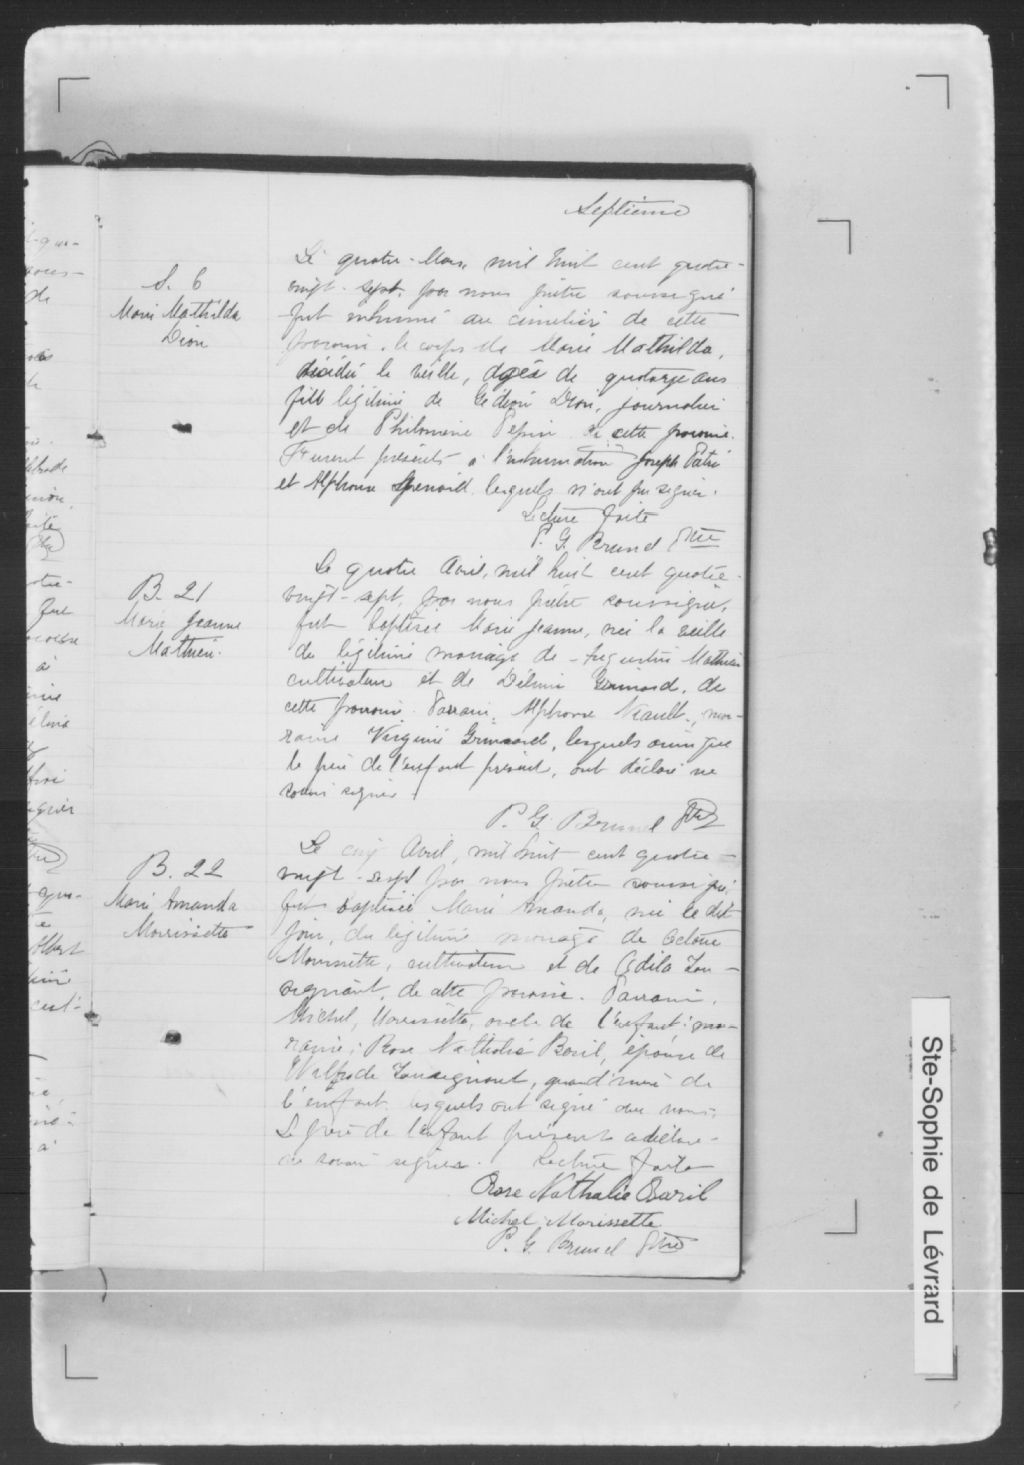 Septième
S. 6
Marie Mathilda
Dion
Le quatre Mars mil huit cent quatre-
vingt-sept, par nous prêtre soussigné
fut inhumé au cimetière de cette
paroisse, le corps de Marie Mathilda,
décédée la veille, agée de quatorze ans
fille légitime de Gédéon Dion, journalier
et de Philomène Pepin de cette paroisse.
Furent présents à l'inhumation Joseph
et Alphonse lesquels n'ont pu signer.
Lecture faite
P. G. Brunel Ptre
B. 21
Marie Jeanne
Mathieu.
Le quatre Avril, mil huit cent quatre-
vingt-sept, par nous prêtre soussigné,
fut baptisée Marie Jeanne, née la veille
du légitime mariage de Augustin Mathieu
cultivateur et de Délima Grimard, de
cette paroisse. Parrain, Alphonse; mar-
raine Virginie Grimard, lesquels ainsi que
le père de l'enfant présent, ont déclaré ne
savoir signer.
P. G. Brunel Ptre
B. 22
Marie Amanda
Morrissette
Le cinq Avril, mil huit cent quatre-
vingt-sept par nous prêtre soussigné,
fut baptisée Marie Amanda, née le dit
jour, du légitime mariage de
Morissette, cultivateur et de Adila Tou-
signant, de cette paroisse. Parrain,
Michel Morissette, oncle de l'enfant; mar-
raine; Rose Nathalie Baril, épouse de
Wilfride Tousignant, grand'mère de
l'enfant lesquels ont signé avec nous.
Le père de l'enfant présent a déclaré
ne savoir signer. Lecture faite
Rose Nathalie Baril
Michel Morissette
P. G. Brunel Ptre
Ste-Sophie de Lévrard